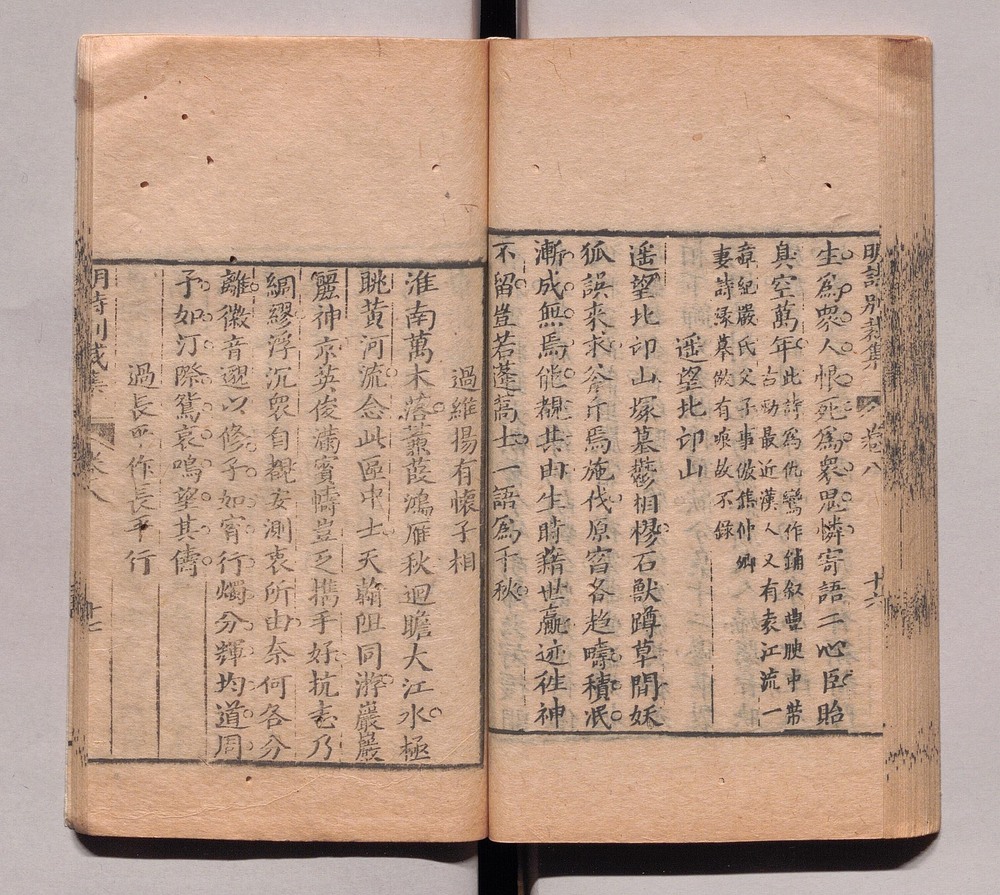 明詩別裁集 卷八 十六
生爲衆人恨死爲衆思憐寄語二心臣貽
臭空萬年此詩爲仇鸞作鋪叙豐腴中帶
古勁最近漢人又有表江流一
章紀嚴氏父子事倣焦仲卿
妻詩涿墓倣有痕故不錄
遥望北邙山
遥望北邙山塚墓鬱相樛石獸蹲草間妖
狐誤來求斧斤焉施伐原窅各趋疇積泯
漸成無焉能覩其由生時藉世羸迹徃神
不留豈若蓬蒿士一語爲千秋
過維揚有懷子相
淮南萬木落蒹葭鴻雁秋迴瞻大江水極
眺黃河流念此區中士天翰阻同游巖巖
麗神京英俊滿賓幬豈乏攜手好抗志乃
綢繆浮沉衆自親妄測衷所由奈何各分
離徽音邈以修子如宵行燭分輝均道周
予如汀際鴛哀鳴望其儔
過長平作長平行
明詩別裁集 卷八 十七